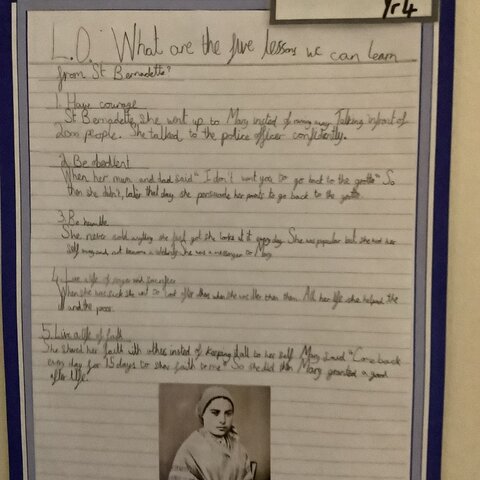 Yr4
L.O: What are the five lessons we can learn
from St Bernadette?
1. Have courage
St Bernadette she went up to Mary insted of away Talking infront of
2000 people. She talked to the police officer confidently.
2. Be obedient
When her mum and dad said "I don't want you to go back to the grotto" So
then she didn't, later that day she persuade her to go back to the grotto.
3. Be humble
She never sold anything she just got she looked at it every day. She was popular but she
self away and become a She was a messenger to Mary.
4. Live a life of and sacrifice
When she was sick she to look after when she was iller than them. All her life she helped the
and the poor.
5. Live a life of faith
She shared her faith with others insted of keeping it all to her self Mary said "Come back
every day for 15 days to show faith to me" So she did then Mary granted a good
after life.